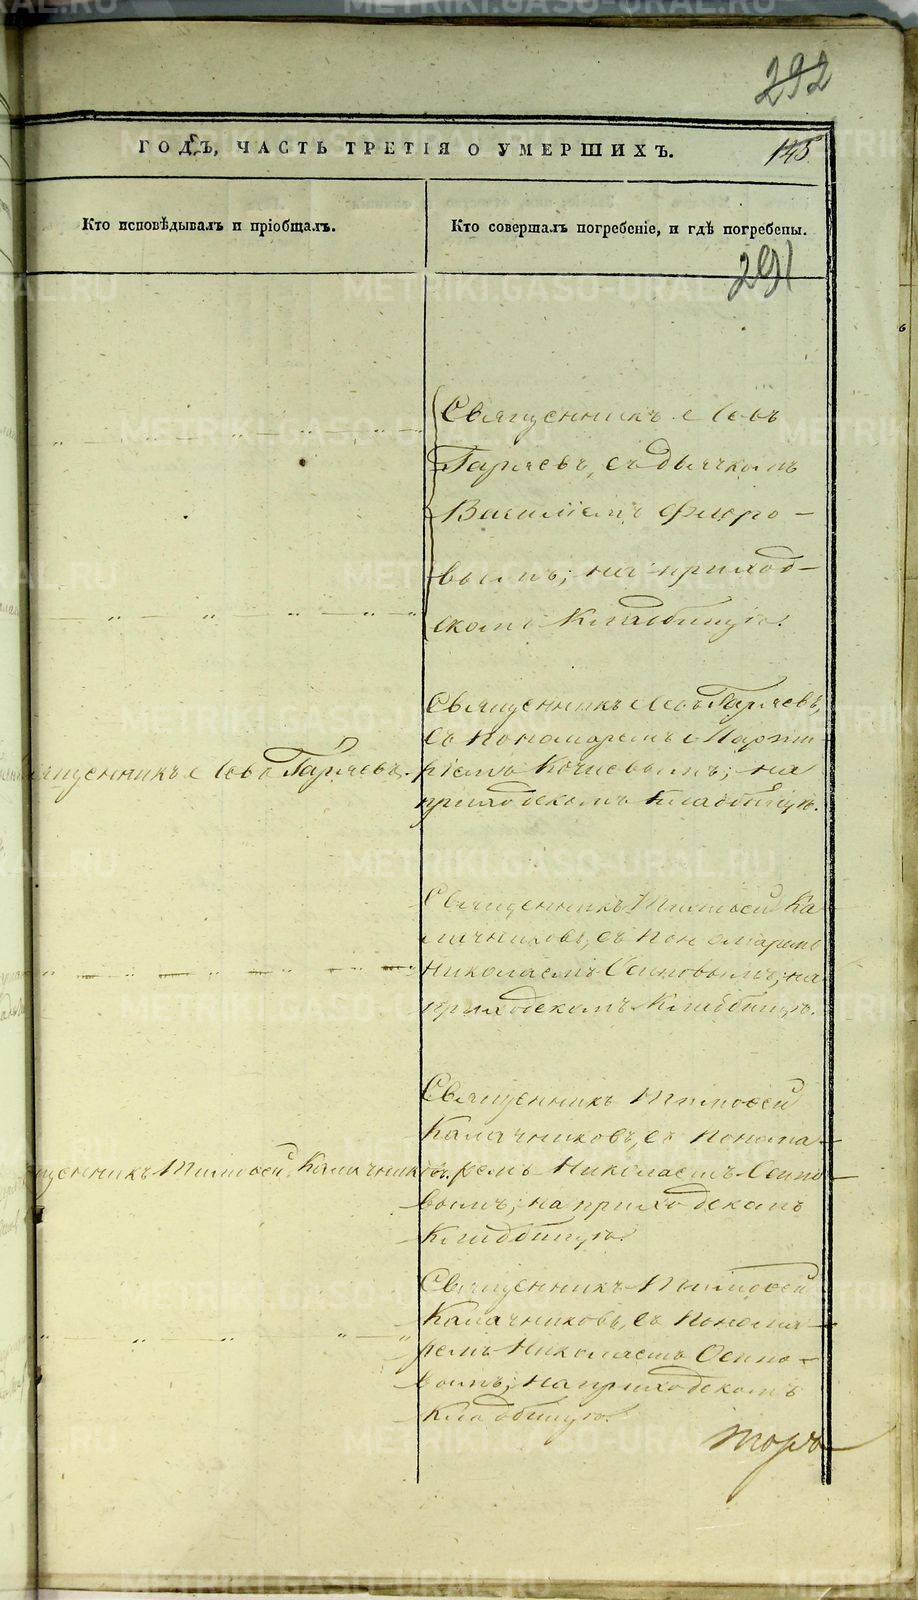 292
ГОДЪ, ЧАСТЬ ТРЕТІЯ О УМЕРШИХЪ.
145
Кто исповѣдывалъ и пріобщалъ.
Кто совершалъ погребеніе, и гдѣ погребены.
291
Священникъ Левъ
Гаряевъ, съ дьячкомъ
Василіемъ Флоро-
вымъ; на приход-
скомъ Кладбищѣ.
Священникъ Левъ Гаряевъ,
съ пономаремъ
Священникъ Левъ Гаряевъ.
на
приходскомъ кладбищѣ.
Священникъ Тимофей Ка
лачниковъ, съ Пономаремъ
Николаемъ Осиповымъ; на
приходскомъ Кладбищѣ.
Священникъ Тимофей
Калачниковъ, съ понома-
щенникъ Тимофей Калачниковъ.
ремъ Николаемъ Осипо-
вымъ; на приходскомъ
Кладбищѣ.
Священникъ Тимофей
Калачниковъ, съ понома-
ремъ Николаемъ Осипо-
вымъ; на приходскомъ
Кладбищѣ.
METRIKI.GASO-URAL.RU